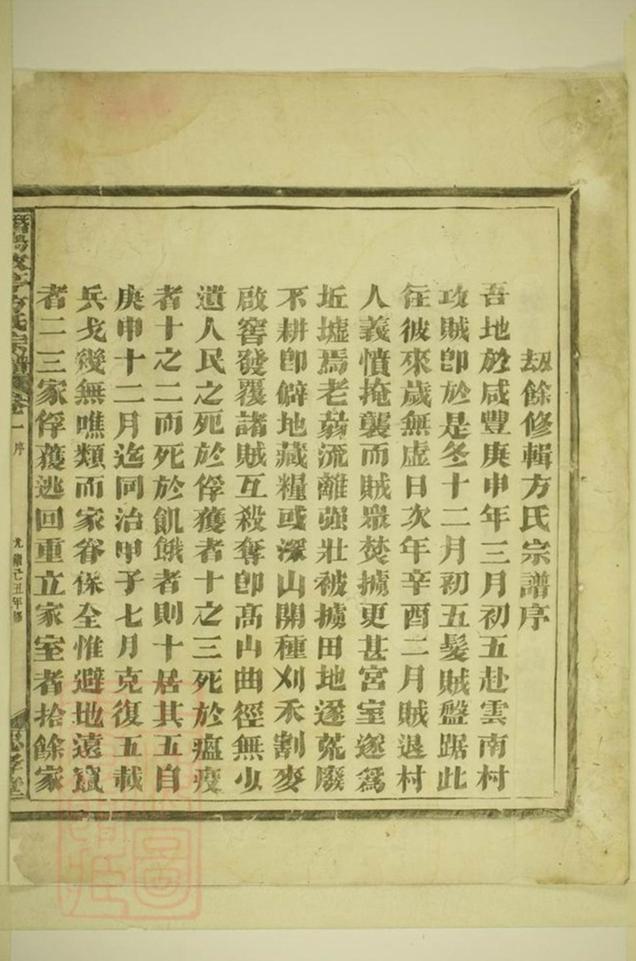 劫餘修輯方氏宗譜序
吾地於咸豐庚申年三月初五赴雲南村
攻賊卽於是冬十二月初五髮賊盤踞此
徃彼來歲無虛日次年辛酉二月賊退村
人義憤掩襲而賊眾焚擄更甚宮室遂爲
坵墟焉老蒻流離强壯被擄田地遂荒廢
不耕卽僻地藏糧或深山開種刈禾割麥
啟窖發覆諸賊互殺奪卽髙山曲徑無少
遺人民之死於俘獲者十之三死於瘟疫
者十之二而死於飢餓者則十居其五自
庚申十二月迄同治甲子七月克復五載
兵戈幾無噍類而家眷保全惟避地遠竄
者二三家俘獲逃回重立家室者拾餘家
方氏宗譜 卷一 序 光緒己丑年修